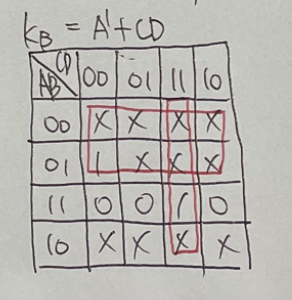 K_B = A'+CD
AB\CD 00 01 11 10
00 X X X X
01 1 X X X
11 0 0 1 0
10 X X X X